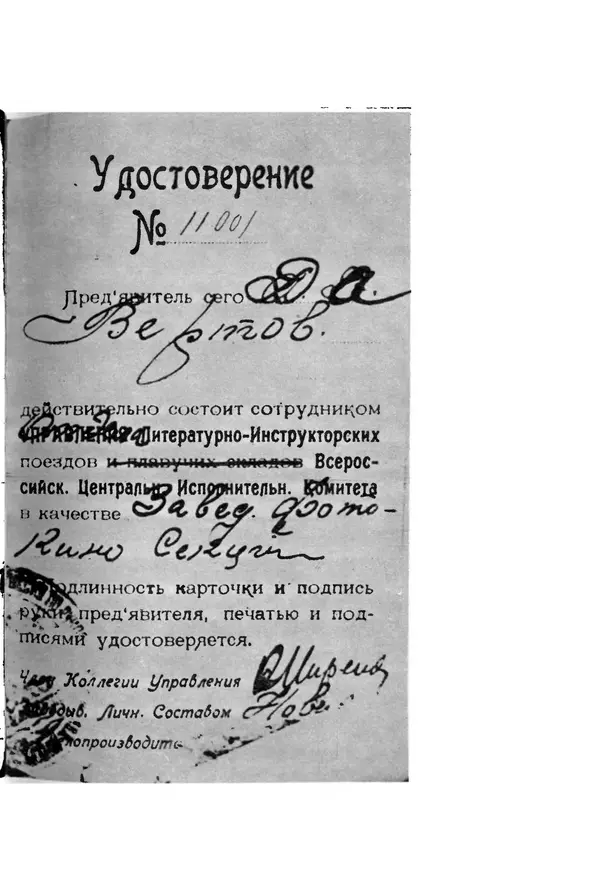 Удостоверение
№ 11001
Пред‘явитель сего Д. А.
Вертов.
действительно состоит сотрудником
Отдела
УПРАВЛЕНИЯ Литературно-Инструкторских
поездов и плавучих складов Всерос-
сийск. Центральн. Исполнительн. Комитета
в качестве Завед. Фото-
Кино Секции
Подлинность карточки и подпись
руки пред‘явителя, печатью и под-
писями удостоверяется.
Член Коллегии Управления
Заведыв. Личн. Составом
Делопроизводитель